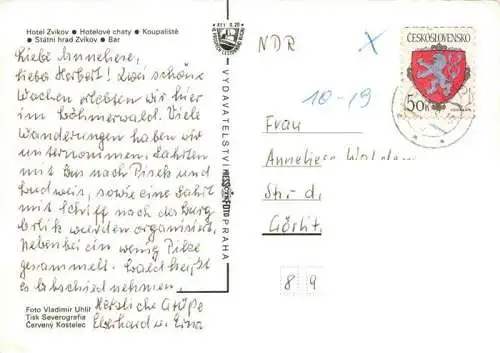 Hotel Zvíkov • Hotelové chaty • Koupaliště
• Státní hrad Zvíkov • Bar
Liebe Anneliese,
lieber Herbert! Zwei schöne
Wochen erlebten wir hier
im Böhmerwald. Viele
Wanderungen haben wir
unternommen. Fahrten
mit Bus nach Pisek und
Budweis, sowie eine Fahrt
mit Schiff nach der Burg
Orlik werden organisiert,
nebenbei ein wenig Pilze
gesammelt. Bald heißt
es Abschied nehmen.
Herzliche Grüße
Eberhard u.
Foto Vladimír Uhlíř
Tisk Severografia
Červený Kostelec
VYDAVATELSTVÍ PRESSFOTO PRAHA
NDR
ČESKOSLOVENSKO
50h
10-19
Frau
Anneliese
Str. d.
Görlitz
8 9